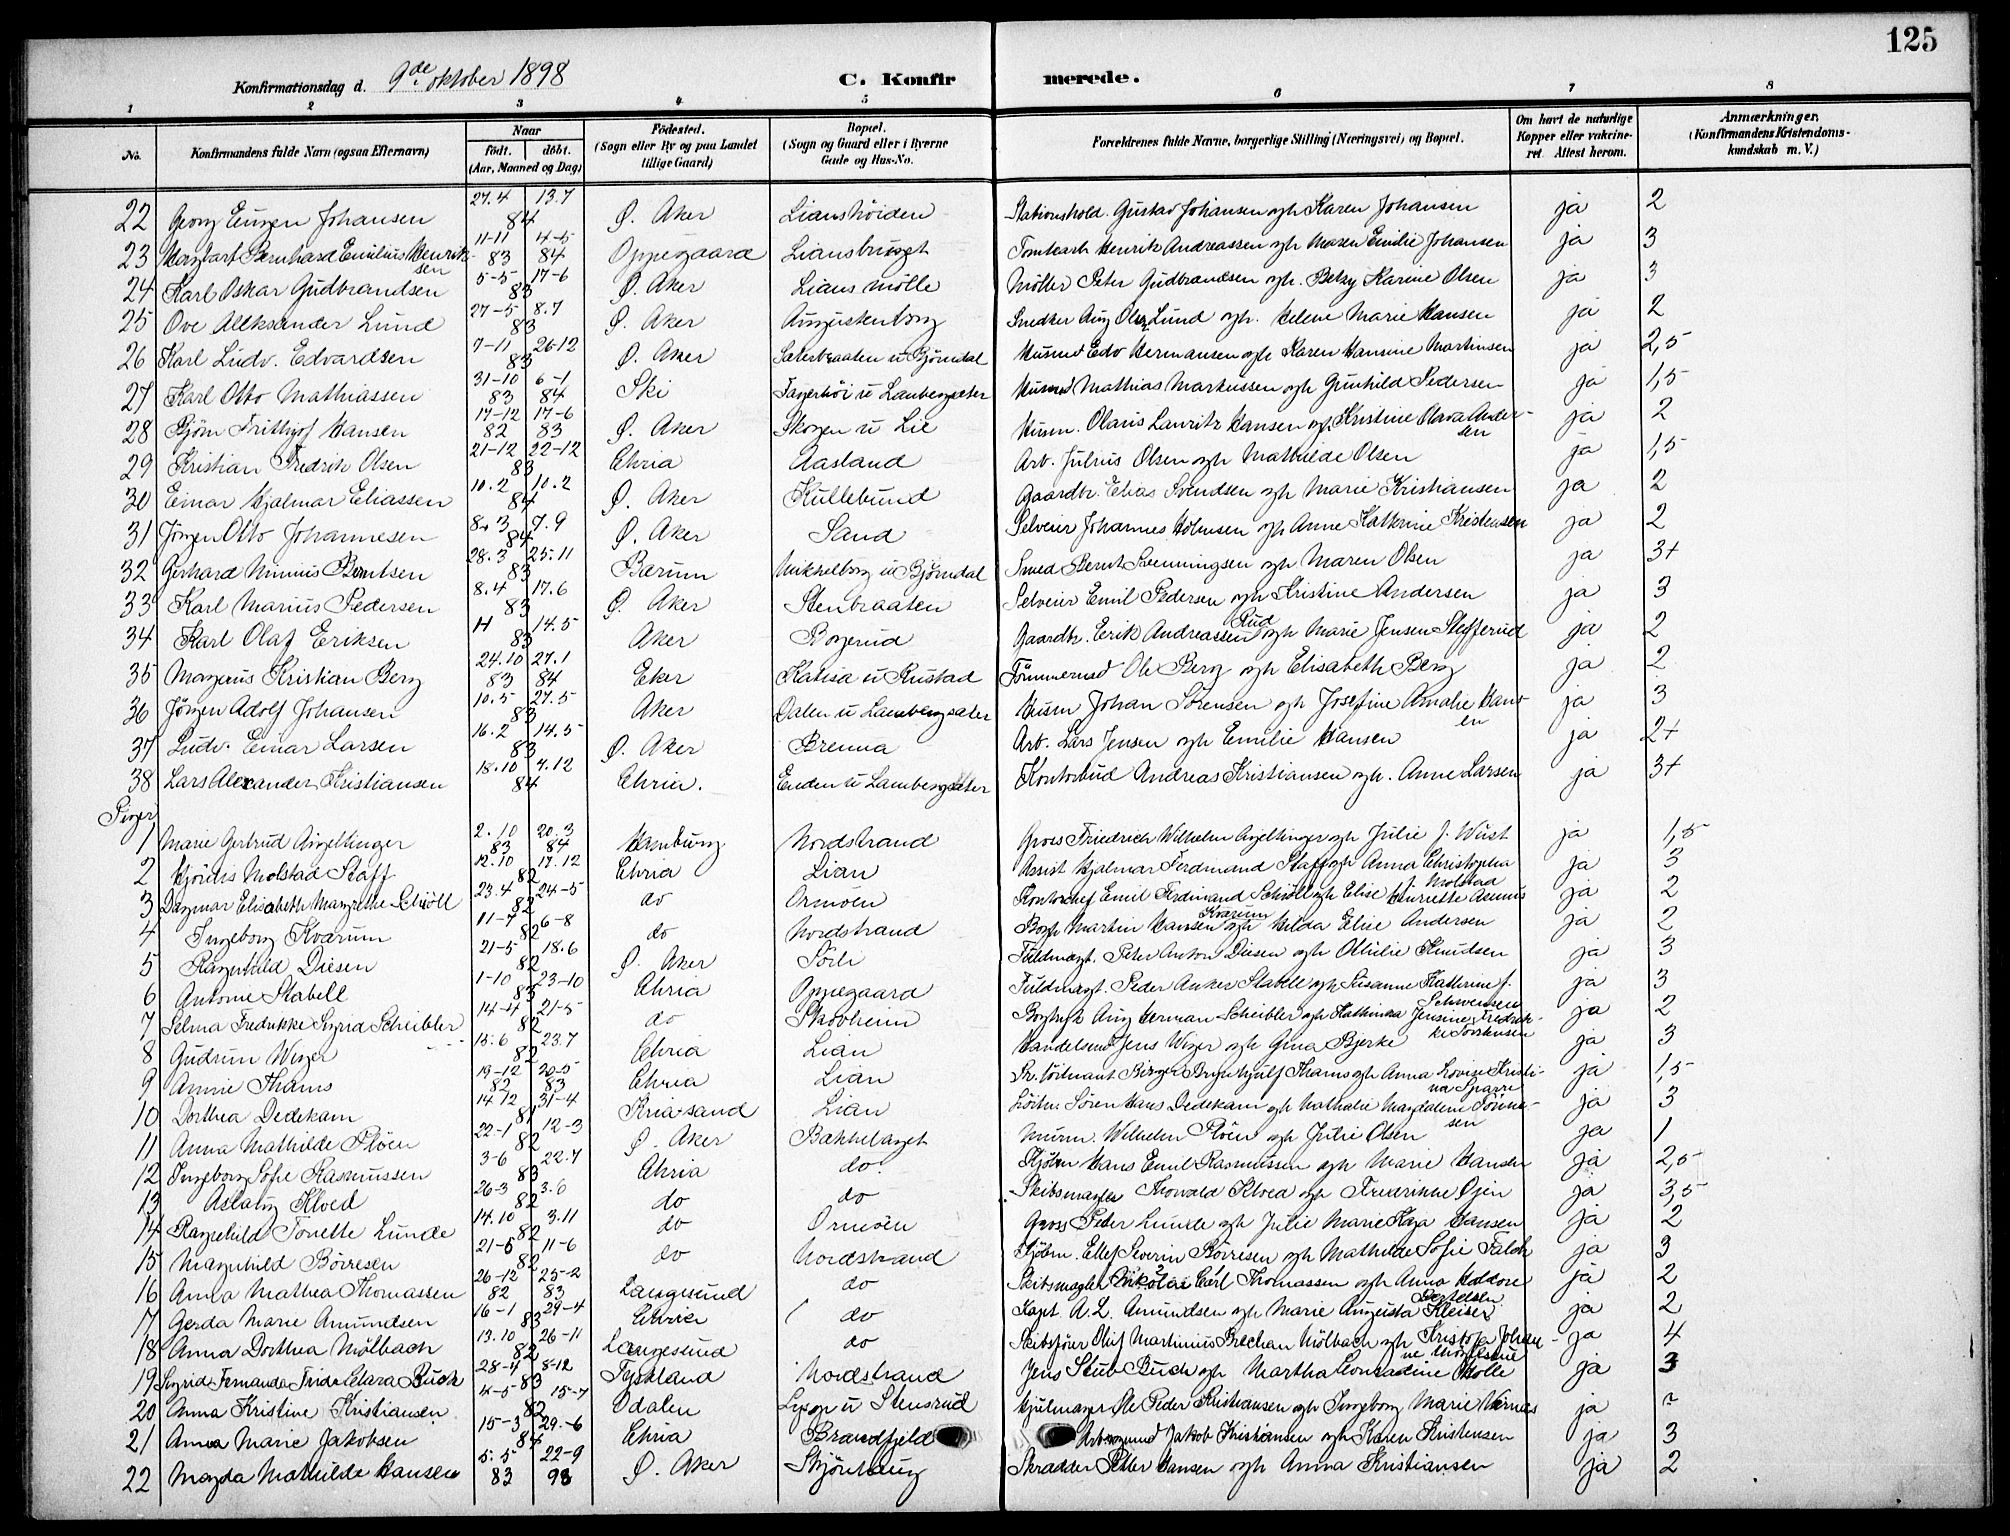 125
Konfirmationsdag d. 9de oktober 1898 C. Konfirmerede.
1 2 3 4 5 6 7 8
No. Konfirmandens fulde Navn (ogsaa Efternavn) Naar født. døbt. (Aar, Maaned og Dag) Fødested. (Sogn eller By og paa Landet tillige Gaard) Bopæl. (Sogn og Gaard eller i Byerne Gade og Hus-No. Forældrenes fulde Navne, borgerlige Stilling (Næringsvei) og Bopæl. Om havt de naturlige Kopper eller vakcineret. Attest herom. Anmærkninger. (Konfirmandens Kristendomskundskab m. V.)
22 Georg Eugen Johansen 27.4 13.7 84 Ø. Aker Lianshöiden Stationshold. Gustav Johansen ogh Karen Johansen ja 2
23 Bernhard Emilius Henriksen 11-11 83 4-5 84 Oppegaard Liansbruget Tomtearb Henrik Andreassen ogh Maren Emilie Johansen ja 3
24 Karl Oskar Gudbrandsen 5-5 17-6 83 Ø. Aker Lians mölle Möller Peter Gudbrandsen ogh. Betzy Karine Olsen ja 3
25 Ove Alleksander Lund 27-5 8.7 83 Ø. Aker Augustenborg Snedker Aug Lund ogh. Helene Marie Hansen ja 2
26 Karl Ludv. Edvardsen 7-11 26-12 83 Ø. Aker Sæterbraaten u Björndal Husmd Edv Hermansen ogh Karen Hansine Martinsen ja 2,5
27 Karl Otto Mathiassen 31-10 83 6-1 84 Ski Fagerhöi u Lambergsæter Husmd Mathias Markussen ogh Gunhild Pedersen ja 1,5
28 Bjørn Frithjof Hansen 17-12 82 17-6 83 Ø. Aker Skogen u Lie Husm. Olaus Lauritz Hansen ogh Kristine Olava Andersen ja 2
29 Kristian Fredrik Olsen 21-12 22-12 83 Chria Aasland Arb. Julius Olsen ogh Mathilde Olsen ja 1,5
30 Einar Hjalmar Eliassen 10.2 10.2 84 Ø. Aker Kullebund Gaardbr. Elias Svendsen ogh Marie Kristiansen ja 2
31 Jörgen Otto Johannesen 8.3 7.9 84 Ø. Aker Sand Selveier Johannes Holmsen ogh Anne Kathrine Kristensen ja 2
32 Gerhard Bentsen 28.3 25.11 83 Bærum Mikkelborg u Bjørndal Smed Bernt Svenningsen ogh Maren Olsen ja 3+
33 Karl Marius Pedersen 8.4 17.6 83 Ø. Aker Stenbraaten Selveier Emil Pedersen ogh Kristine Andersen ja 3
34 Karl Olaf Eriksen 14.5 83 Aker Bogerud Gaardbr. Erik Andreassen Rud ogh Marie Jensen Slefferud ja 2
35 Magnus Kristian Berg 24.10 83 27.1 84 Eker Katisa u Rustad Tömmermd Ole Berg ogh Elisabeth Berg ja 2
36 Jörgen Adolf Johansen 10.5 27.5 83 Aker Dalen u Lambergsæter Husm Johan Sörensen ogh Josefine Amalie Hansen ja 3
37 Ludv. Einar Larsen 16.2 14.5 83 Ø. Aker Brenna Arb. Lars Jensen ogh Emilie Hansen ja 2+
38 Lars Alexander Kristiansen 18.10 7.12 84 Chria. Enden u Lambergsæter Kontorbud Andreas Kristiansen ogh. Anne Larsen ja 3+
Piger
1 Marie Gertrud Angeltinger 2.10 83 20.3 84 Hamburg Nordstrand Gross Friedrich Wilhelm Angeltinger ogh Julie J. Wüst ja 1,5
2 Hjördis Molstad Staff 12.10 17.12 82 Chria Lian Assist Hjalmar Ferdinand Staff ogh Anna Christopha f. Molstad ja 3
3 Dagmar Elisabeth Margrethe Schiöll 23.4 24-5 82 do Ormöen Kontorchef Emil Ferdinand Schiöll ogh Elise Henriette Asmus ja 2
4 Ingeborg Kvarum 11-7 6-8 82 do Nordstrand Bogh Martin Hansen Kvarum ogh Hilda Elise Andersen ja 2
5 Ragnhild Diesen 21-5 18.6 82 Ø. Aker Sörli Fuldmægt. Peter Anton Diesen ogh Ottilie Knudsen ja 3
6 Antonie Stabell 1-10 23-10 83 Chria Oppegaard Fuldmægt. Peder Anker Stabell ogh Susanne Kathrine f. Schwensen ja 3
7 Selma Fredrikke Sigrid Scheibler 14-4 21-5 82 do Skovheim Bogtryk Aug Herman Scheibler ogh Kathinka Jensine Fredrikke Torstensen ja 2
8 Gudrun Wiger 15.6 23.7 82 Chria Lian Handelsmd Jens Wiger ogh Gina Bjerke ja 3
9 Annie Thams 19-12 82 20-5 83 Chria Lian Pr. löitnant Birger Brynhjulf Thams ogh Anna Lovise Kristina Sparre ja 1,5
10 Dorthea Dedekam 14.12 31-4 81 Kria-sand Lian Löitn. Sören Hans Dedekam ogh Nathalie Magdalene Tönnesen ja 3
11 Anna Mathilde Plöen 22-1 12-3 82 Ø. Aker Bakkelaget Murm. Wilhelm Plöen ogh Julie Olsen ja 1
12 Ingeborg Sofie Rasmussen 3-6 22.7 83 Chria do. Kjöbm Hans Emil Rasmussen ogh Marie Hansen ja 2,5
13 Aslaug Kloed 26-3 3.6 82 do do Skibsmægler Thorvald Kloed ogh Fredrikke Öjen ja 3,5
14 Ragnhild Tonette Lunde 14.10 3.11 82 do Ormöen Gross Peder Lunde ogh Julie Marie Kaja Hansen ja 2
15 Magnhild Börresen 21-5 11-6 82 do Nordstrand Kjöbm. Ellef Severin Börresen ogh Mathilde Sofie Falch ja 3
16 Anna Mathea Thomassen 26-12 82 25-2 83 Langesund do Skibsmægler Nikolai Carl Thomassen ogh Anna ja 2
17 Gerda Marie Amundsen 16-1 29-4 83 Chria do Kapt A. L. Amundsen ogh Marie Augusta Kleiser ja 2
18 Anna Dorthea Mölbach 13.10 26-11 82 Langesund do Skibsförer Oluf Martinius Brechan Mölbach ogh ja 4
19 Sigrid Fernanda Frida Clara Buch 28-4 8-12 83 Tyskland Nordstrand Jens Stub Buch ogh Martha Conradine Holle ja 3
20 Anna Kristine Kristiansen 4-5 15-7 82 Odalen u Stensrud Hjulmager Ole Peder Kristiansen ogh Ingeborg Marie ja 2
21 Anna Marie Jakobsen 15-3 29.-6 84 Chria Brandfjeld Jakob Kristiansen ogh Karen Kristensen ja 3
22 Magda Mathilde Hansen 5.5 83 22-9 93 Ø. Aker Skjönhaug Skradder Petter Hansen ogh Anna Kristiansen ja 2